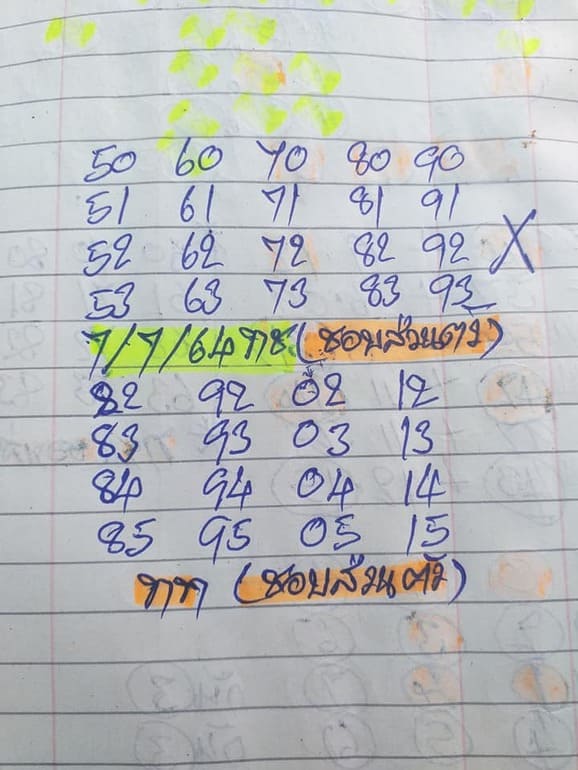 50 60 70 80 90
51 61 71 81 91
52 62 72 82 92 X
53 63 73 83 93
7/7/64 ทช (ชอบส่วนตัว)
82 92 02 12
83 93 03 13
84 94 04 14
85 95 05 15
(ชอบส่วนตัว)